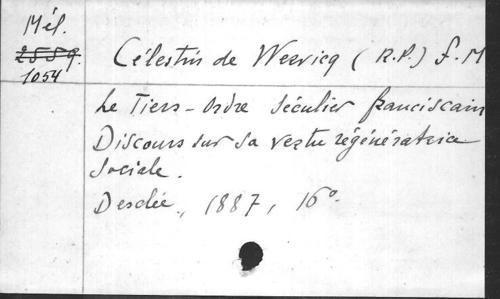 Mél.
2559.
1054
Célestin de Wervicq (R.P.) f. M
Le Tiers-Ordre séculier franciscain
Discours sur sa vertu régénératrice
sociale.
Desclée, 1887, 16°.